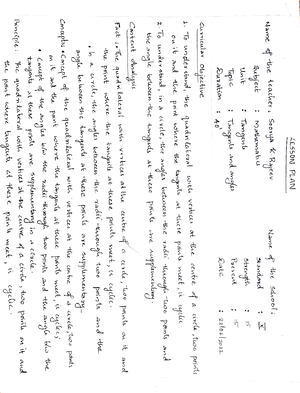 LESSON PLAN
Name of the teacher: Sreeya K Rajeev
Name of the school:
Subject : Mathematics
Standard : X
Unit : Tangents
Strength : 15
Topic : Tangents and angles
Present : 15
Duration : 40'
Date : 22/02/2022
Curricular Objective
1. To understand, the quadrilateral with vertices at the centre of a circle, two points
on it and the point where the tangents at these points meet, is cyclic
2. To understand, in a circle, the angles between the radii through two points and
the angle between the tangents at these points are supplementary
Content Analysis
Fact : • The quadrilateral with vertices at the centre of a circle, two points on it and
the point where the tangents at these points meet, is cyclic.
• In a circle, the angle between the radii through two points and the
angle between the tangents at these points are supplementary.
Concepts : • Concept of the quadrilateral with vertices at the centre of a circle, two points
on it and the point where the tangents at these points meet is cyclic;
• Concept of the angles b/w the radii through two points and the angle b/w the
tangents at these points are supplementary in a circle.
Principle : The quadrilateral with vertices at the centre of a circle, two points on it and
the point where tangents at these points meet, is cyclic.